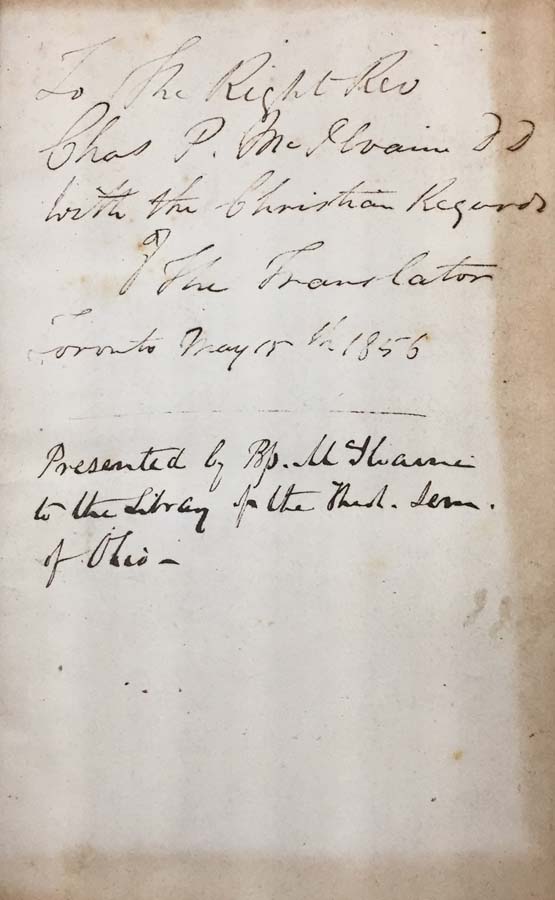 To The Right Rev
Chas P. McIlvaine DD
With the Christian Regards
of The Translator
Toronto May 15th 1856
Presented by Bp. McIlvaine
to the Library of the Theol. Sem.
of Ohio –